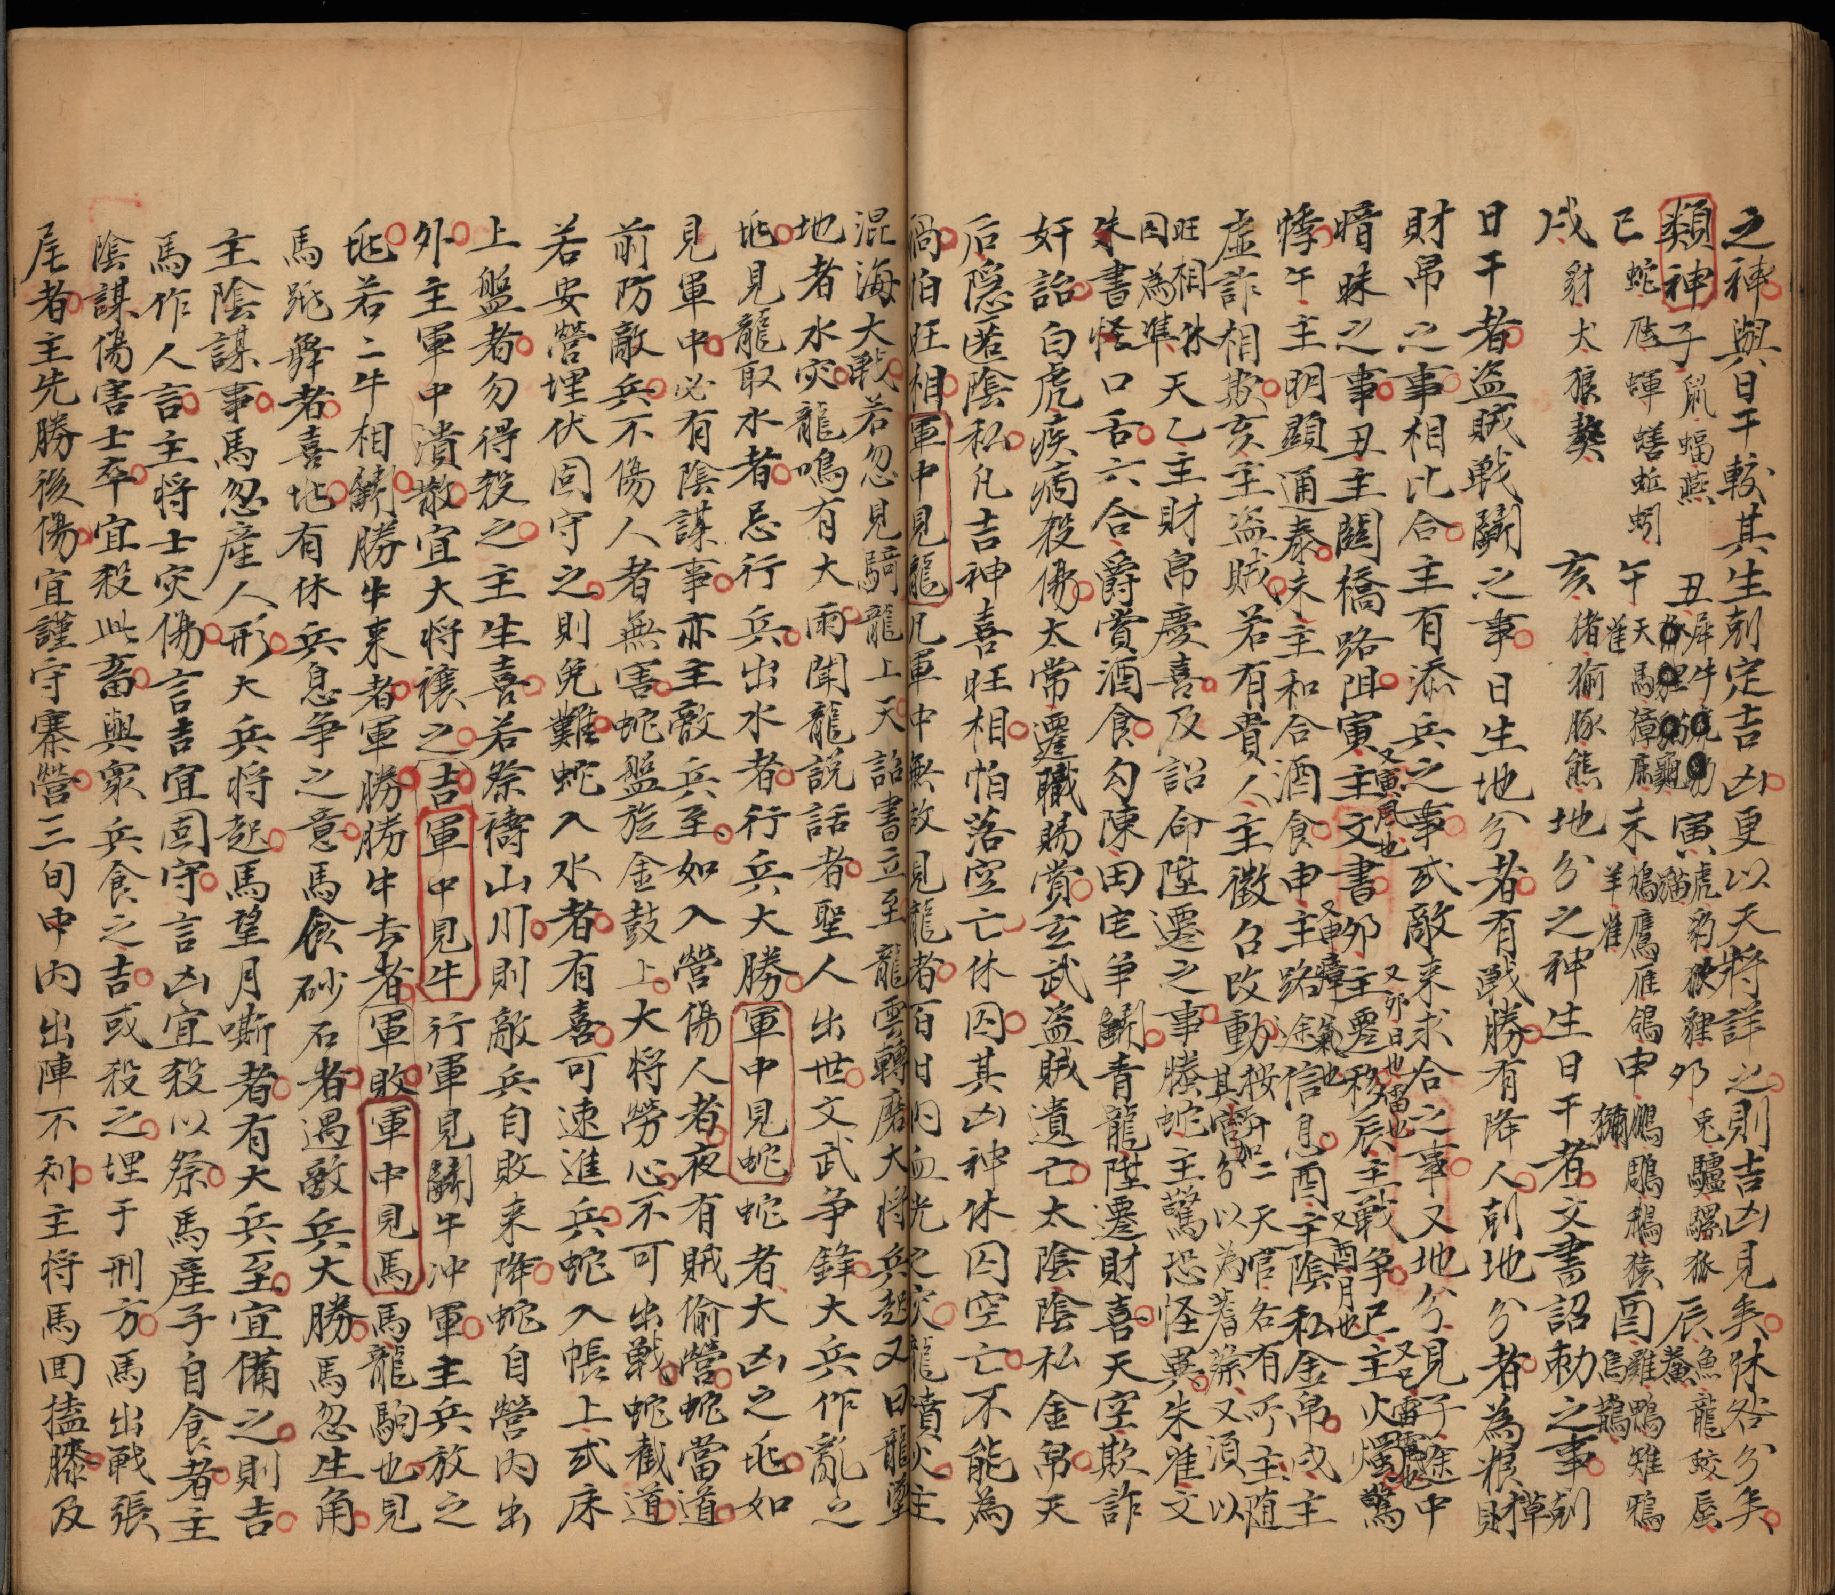 之神與日干較其生剋定吉凶更以天將詳之則吉凶見矣休咎分矣
類神子鼠蝠燕 丑犀牛 寅虎豹狸猫 卯兎驢騾狐 辰魚龍蛟蜃
巳蛇 蟮蚯蚓 午天馬獐鹿 未鳩鷹雁鴿羊 申鵬鵰鵝猿 酉雞鴨雉鴉烏鵲
戌豺犬狼獒 亥猪豚熊 地分之神生日干者文書詔勅之事剋
日干者盗賊戰鬭之事日生地分者有戰勝有降人剋地分者為粮財草
財帛之事相比合主有添兵之事或敵来求合之事又地分見子途中
暗昧之事丑主關橋路阻寅主文書卯主遷移辰主戰争巳主火燭驚
悸午主明顯通泰未主和合酒食申主路途信息酉主陰私金帛戌主
虛詐相欺亥主盗賊若有貴人主徵召改動按 二天官各有所主随其官分以為 又須以
旺相休囚為準天乙主財帛慶喜及詔命陞遷之事螣蛇主驚恐怪異朱雀文
書怪口舌六合爵賞酒食勾陳田宅争鬭青龍陞遷財喜天空欺詐
奸詒白虎疾病殺傷太常遷職賜賞玄武盗賊遺亡太陰陰私金帛天
后隐匿陰私凡吉神喜旺相怕落空亡休囚其凶神休囚空亡不能為
禍怕旺相軍中見龍凡軍中無故見龍者百日内血光之灾龍噴火主
混海大戰若忽見騎龍上天詔書立至龍雲轉磨大將兵起又曰龍墜
地者水灾龍鳴有大雨聞龍說話者聖人出世文武争鋒大兵作亂之
兆見龍取水者忌行兵出水者行兵大勝軍中見蛇蛇者大凶之兆如
見軍中必有陰謀事亦主敵兵至如入營傷人者夜有賊偷營蛇當道
前防敵兵不傷人者無害蛇盤旋金鼓上大将勞心不可出戰蛇截道
若安營埋伏固守之則免難蛇入水者有喜可速進兵蛇入帳上或床
上盤者勿得殺之主生喜若祭禱山川則敵兵自敗来降蛇自營内出
外主軍中潰散宜大将禳之吉軍中見牛行軍見鬭牛冲軍主兵放之
兆若二牛相鬭勝牛来者軍勝勝牛去者軍敗軍中見馬馬龍駒也見
馬跳舞者喜兆有休兵息争之意馬食砂石者遇敵兵大勝馬忽生角
主陰謀事馬忽產人形大兵将起馬望月嘶者有大兵至宜備之則吉
馬作人言主将士灾傷言吉宜固守言凶宜殺以祭馬產子自食者主
陰謀傷害士卒宜殺此畜與衆兵食之吉或殺之埋于刑方馬出戰張
尾者主先勝後傷宜謹守寨營三旬中内出陣不利主将馬回 膝及